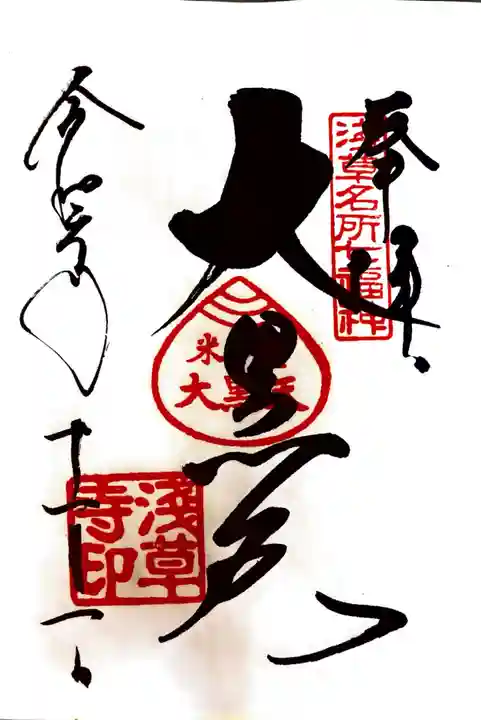 奉拝
浅草名所七福神
大黒天
米
大黒天
浅草
寺印
令和
十一月
一日